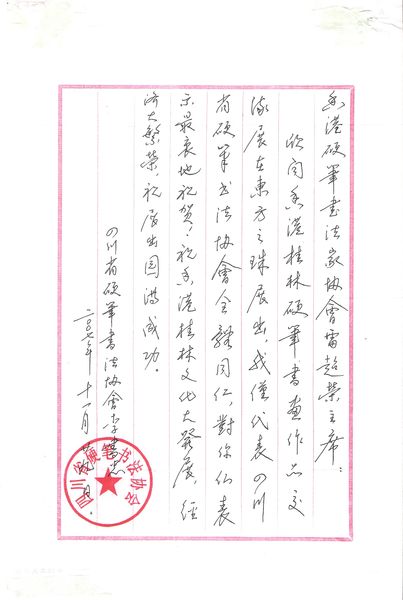 香港硬筆書法家協會雷超榮主席：
欣闻香港桂林硬筆書畫作品交
流展在東方之珠展出，我僅代表四川
省硬筆书法协會全體同仁，對你们表
示最衷地祝贺！祝香港桂林文化大發展，經
济大繁荣，祝展出圆满成功。
四川省硬筆書法协會李書志
二〇〇七年十一月
四川省硬笔书法协会